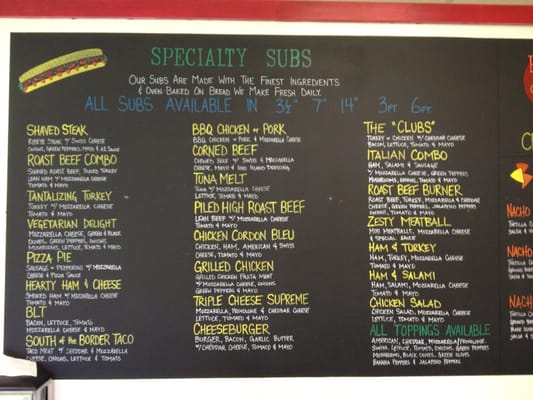 SPECIALTY SUBS
OUR SUBS ARE MADE WITH THE FINEST INGREDIENTS
& OVEN BAKED ON BREAD WE MAKE FRESH DAILY.
ALL SUBS AVAILABLE IN 3½" 7" 14" 3FT. 6FT.
SHAVED STEAK
RIBEYE STEAK W/ SWISS CHEESE
ONIONS, GREEN PEPPERS, MAYO & A1 SAUCE
ROAST BEEF COMBO
SHAVED ROAST BEEF, TURKEY
LEAN HAM W/ MOZZARELLA CHEESE
TOMATO & MAYO
TANTALIZING TURKEY
TURKEY W/ MOZZARELLA CHEESE
TOMATO & MAYO
VEGETARIAN DELIGHT
MOZZARELLA CHEESE, GREEN & BLACK
OLIVES, GREEN PEPPERS, ONIONS
MUSHROOMS, LETTUCE, TOMATO & MAYO
PIZZA PIE
SAUSAGE & PEPPERONI W/ MOZZARELLA
CHEESE & PIZZA SAUCE
HEARTY HAM & CHEESE
SMOKED HAM W/ MOZZARELLA CHEESE
TOMATO & MAYO
BLT
BACON, LETTUCE, TOMATO
MOZZARELLA CHEESE & MAYO
SOUTH OF THE BORDER TACO
TACO MEAT W/ CHEDDAR & MOZZARELLA
CHEESE, ONIONS, LETTUCE & TOMATO
BBQ CHICKEN OR PORK
BBQ CHICKEN OR PORK & MOZZARELLA CHEESE
CORNED BEEF
CORNED BEEF W/ SWISS & MOZZARELLA
CHEESE, MAYO & 1000 ISLAND DRESSING
TUNA MELT
TUNA W/ MOZZARELLA CHEESE
LETTUCE, TOMATO & MAYO
PILED HIGH ROAST BEEF
LEAN BEEF W/ MOZZARELLA CHEESE
TOMATO & MAYO
CHICKEN CORDON BLEU
CHICKEN, HAM, AMERICAN & SWISS
CHEESE, TOMATO & MAYO
GRILLED CHICKEN
GRILLED CHICKEN FAJITA MEAT
W/ MOZZARELLA CHEESE, ONIONS
GREEN PEPPERS & MAYO
TRIPLE CHEESE SUPREME
MOZZARELLA, PROVOLONE & CHEDDAR CHEESE
LETTUCE, TOMATO & MAYO
CHEESEBURGER
BURGER, BACON, GARLIC BUTTER
W/ CHEDDAR CHEESE, TOMATO & MAYO
THE "CLUBS"
TURKEY OR CHICKEN W/ CHEDDAR CHEESE
BACON, LETTUCE, TOMATO & MAYO
ITALIAN COMBO
HAM, SALAMI & SAUSAGE
W/ MOZZARELLA CHEESE, GREEN PEPPERS
MUSHROOMS, ONIONS, TOMATO & MAYO
ROAST BEEF BURNER
ROAST BEEF, TURKEY, MOZZARELLA & CHEDDAR
CHEESE, GREEN PEPPERS, JALAPEÑO PEPPERS
ONIONS, TOMATO & MAYO
ZESTY MEATBALL
MINI MEATBALLS, MOZZARELLA CHEESE
& SPECIAL SAUCE
HAM & TURKEY
HAM, TURKEY, MOZZARELLA CHEESE
TOMATO & MAYO
HAM & SALAMI
HAM, SALAMI, MOZZARELLA CHEESE
TOMATO & MAYO
CHICKEN SALAD
CHICKEN SALAD, MOZZARELLA CHEESE
LETTUCE, TOMATO & MAYO
ALL TOPPINGS AVAILABLE
AMERICAN, CHEDDAR, MOZZARELLA/PROVOLONE
SWISS, LETTUCE, TOMATO, ONIONS, GREEN PEPPERS
MUSHROOMS, BLACK OLIVES, GREEN OLIVES
BANANA PEPPERS & JALAPEÑO PEPPERS
NACHO
NACHO
NACH